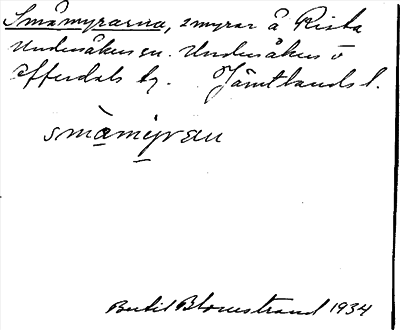 Småmyrarna, småmyrar å Rista
Undersåkers sn. Undersåkers o
Offerdals tg. Jämtlands l.
småmyran
Bertil Blomstrand 1934